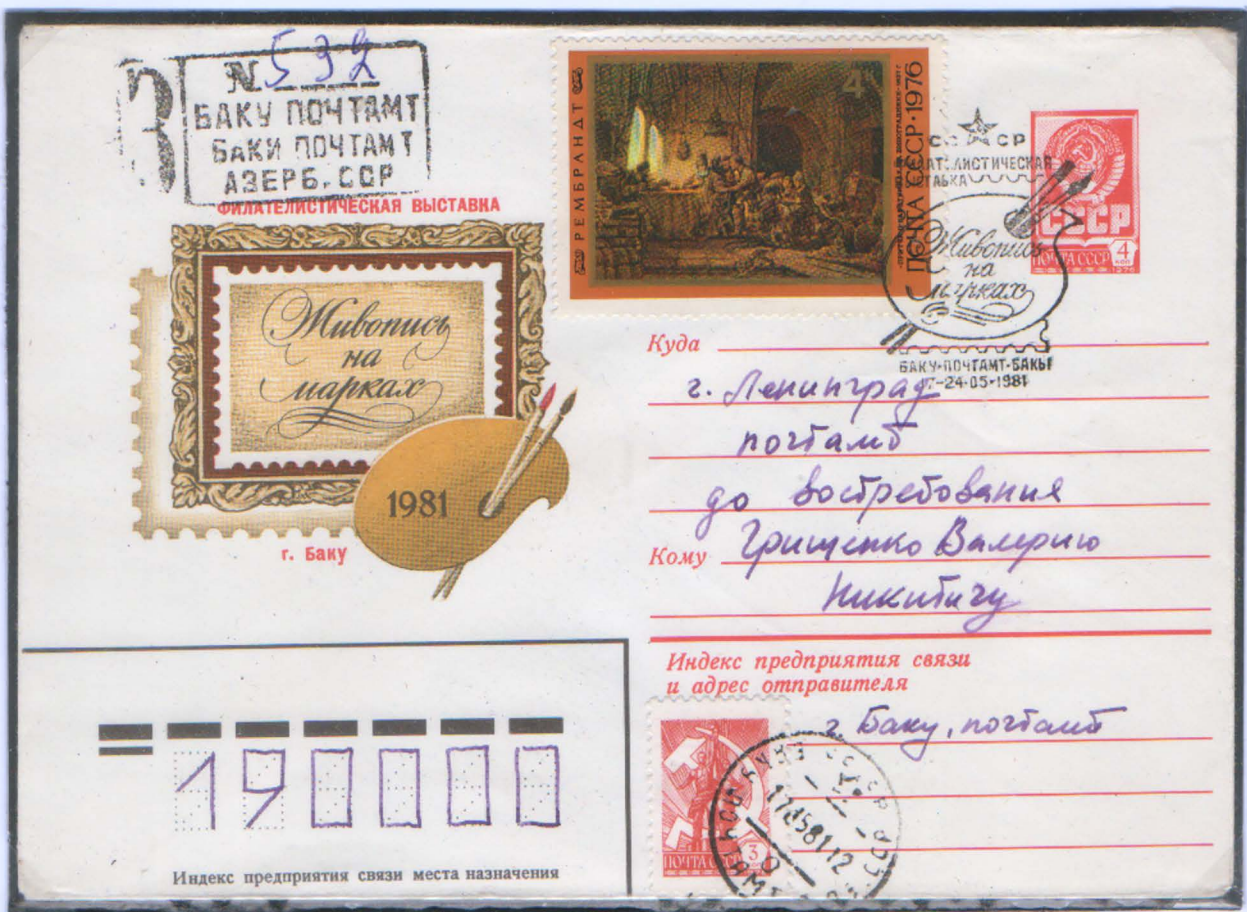 № 532
БАКУ ПОЧТАМТ
БАКИ ПОЧТАМТ
АЗЕРБ. ССР
ФИЛАТЕЛИСТИЧЕСКАЯ ВЫСТАВКА
Живопись
на
марках
1981
г. Баку
РЕМБРАНДТ
4к
ПОЧТА СССР·1976
СССР
ФИЛАТЕЛИСТИЧЕСКАЯ
ВЫСТАВКА
Живопись
на
марках
БАКУ-ПОЧТАМТ-БАКЫ
24-05-1981
СССР
ПОЧТА СССР 4 КОП
1976
Куда
г. Ленинград
почтамт
до востребования
Кому Грищенко Валерию
Никитичу
Индекс предприятия связи
и адрес отправителя
г. Баку, почтамт
ПОЧТА СССР 3
190000
Индекс предприятия связи места назначения